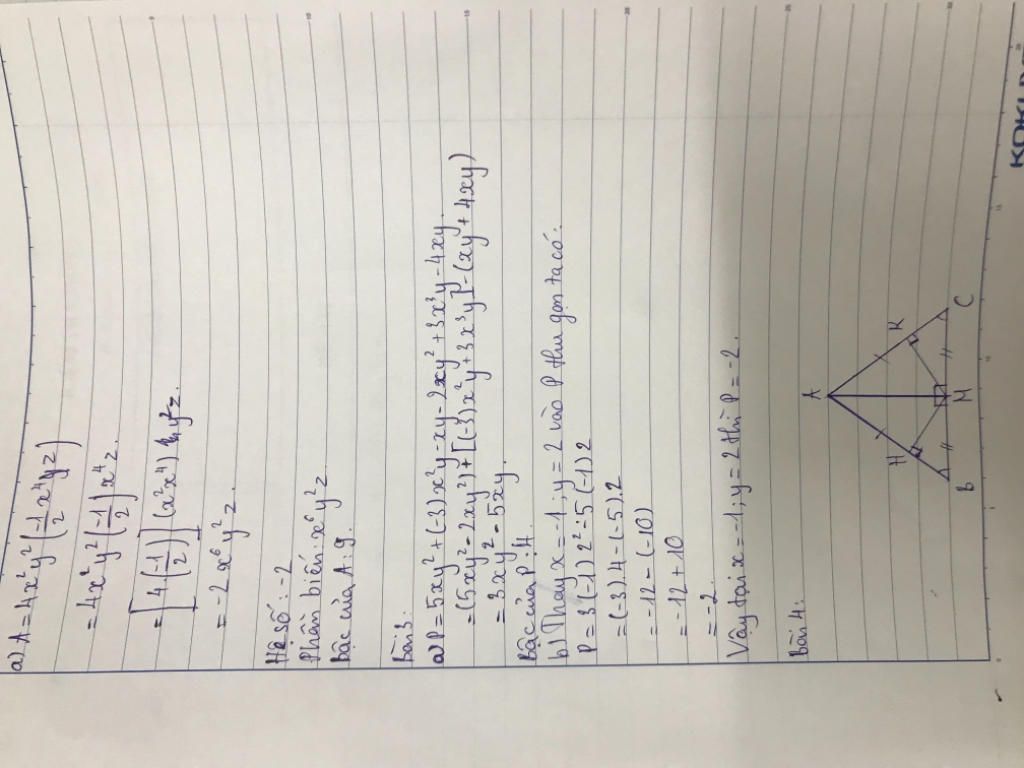 a) A = 4x²y²(-1/2 x⁴yz)
= 4x²y²(-1/2)x⁴z.
= [4(-1/2)](x²x⁴) y²z.
= -2x⁶y²z.
Hệ số: -2
Phần biến: x⁶y²z
Bậc của A: 9.
Bài 3:
a) P = 5xy² + (-3)x²y - xy - 2xy² + 3x³y - 4xy.
= (5xy² - 2xy²) + [(-3)x²y + 3x³y] - (xy + 4xy)
= 3xy² - 5xy.
Bậc của P: 4.
b) Thay x = -1; y = 2 vào P thu gọn ta có:
P = 3(-1)2² - 5(-1)2
= (-3).4 - (-5).2
= -12 - (-10)
= -12 + 10
= -2.
Vậy tại x = -1, y = 2 thì P = -2.
Bài 4:
A
H K
B M C